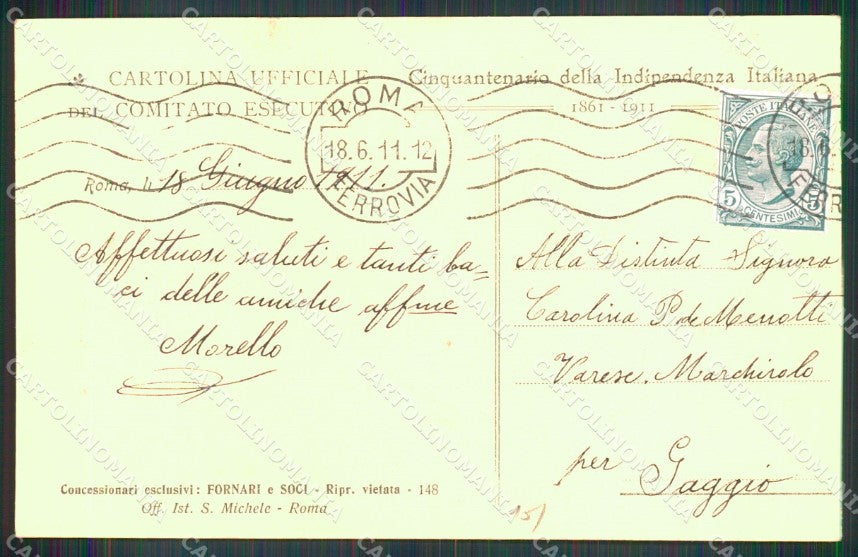 * CARTOLINA UFFICIALE
DEL COMITATO ESECUTIVO
Cinquantenario della Indipendenza Italiana
1861 - 1911
ROMA
18.6.11.12
FERROVIA
POSTE ITALIANE
5 CENTESIMI 5
Roma, li 18 Giugno 1911.
Affettuosi saluti e tanti ba-
ci delle amiche affme
Morello
Alla Distinta Signora
Carolina P. de Menotti
Varese. Marchirolo
per Gaggio
Concessionari esclusivi: FORNARI e SOCI - Ripr. vietata - 148
Off. Ist. S. Michele - Roma
15/
CARTOLINOMANIA